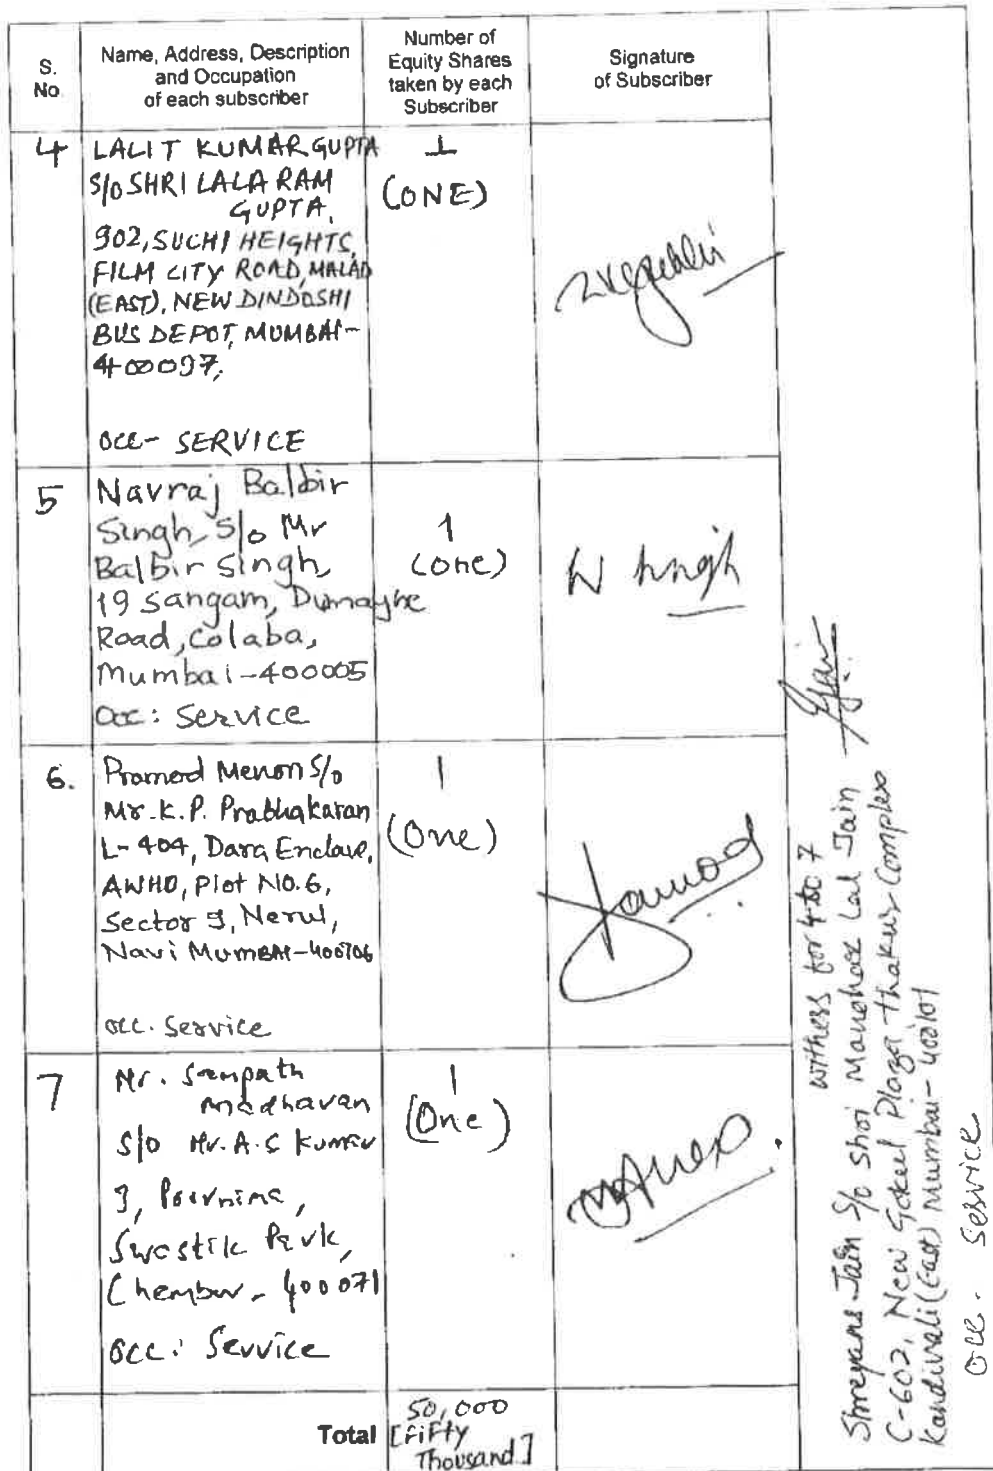 S.
No
Name, Address, Description
and Occupation
of each subscriber
Number of
Equity Shares
taken by each
Subscriber
Signature
of Subscriber
4
LALIT KUMAR GUPTA
S/o SHRI LALA RAM
GUPTA,
902, SUCHI HEIGHTS,
FILM CITY ROAD, MALAD
(EAST), NEW DINDOSHI
BUS DEPOT, MUMBAI-
400097,
OCC- SERVICE
1
(ONE)
5
Navraj Balbir
Singh, S/o Mr
Balbir Singh,
19 Sangam, Dumayne
Road, Colaba,
Mumbai-400005
Occ: Service
1
(one)
N Singh
6.
Pramod Menon S/o
Mr. K.P. Prabhakaran
L-404, Dara Enclave,
AWHO, Plot NO.6,
Sector 9, Nerul,
Navi MumBAI-400706
occ. Service
1
(One)
7
Mr. Sampath
Madhavan
S/o Mr. A.S Kumar
3, Poornima,
Swastik Park,
Chembur - 400071
occ: Service
1
(One)
Total
50,000
[Fifty
Thousand]
witness for 4 to 7
Shreyans Jain S/o Shri Manohar Lal Jain
C-602, New Gokul Plaza Thakur Complex
Kandivali (East) Mumbai- 400101
occ. Service